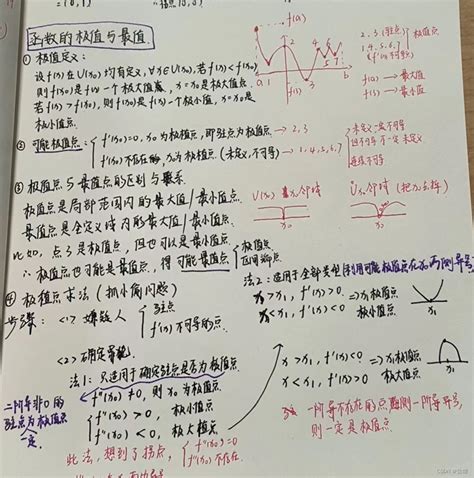 函数的极值与最值
f(a)
2, 3 (驻点)
1, 4, 5, 6, 7
(f'(x)不存在)
极值点
f(a) → 最大值
f(3) → 最小值
① 极值定义:
设f(x)在U(x₀)均有定义, ∀x∈U(x₀), 若f(x)<f(x₀)
则f(x₀)是f(x)一个极大值, x=x₀是极大值点
若f(x)>f(x₀), 则f(x₀)是f(x)一个极小值, x=x₀是
极小值点
② 可能极值点:
f'(x₀)=0, x₀为极值点, 即驻点为极值点 → 2, 3
f'(x₀)不存在, x₀为极值点 (未定义, 不可导) → 1, 4, 5, 6, 7
未定义一定不可导
但不可导不一定未定义
连续不可导
③ 极值点与最值点的区别与联系
极值点是局部范围内的最大值/最小值点.
最值点是全定义域内的最大值/最小值点
比如, 点3是极值点, 但也可以是最小值点
∴ 极值点也可能是最值点, 得可能最值点
极值点
区间端点
U(x₀) 邻域
邻域 (把x₀去掉)
x₀
x₀
④ 极值点求法 (抓小偷问感)
步骤: <1> 嫌疑人
驻点
f'(x)不可导的点.
<2> 确定
法1: 只适用于确定驻点是否为极值点
f''(x₀)≠0, 则x₀为极值点
f''(x₀)>0, 极小值点
f''(x₀)<0, 极大值点
二阶导非0的
驻点为极值点
一定
此法, 想到了拐点,
f''(x₀)=0
f''(x₀)不存在.
法2: 适用于全部类型 (利用可能极值点在x₀两侧异号)
x>x₁, f'(x)>0
x<x₁, f'(x)<0
⇒ x₁极值点
极小值点
x>x₁, f'(x)<0
x<x₁, f'(x)>0
⇒ x₁极值点
极大值点
一阶导不存在的点两侧一阶导异号,
则一定是极值点.